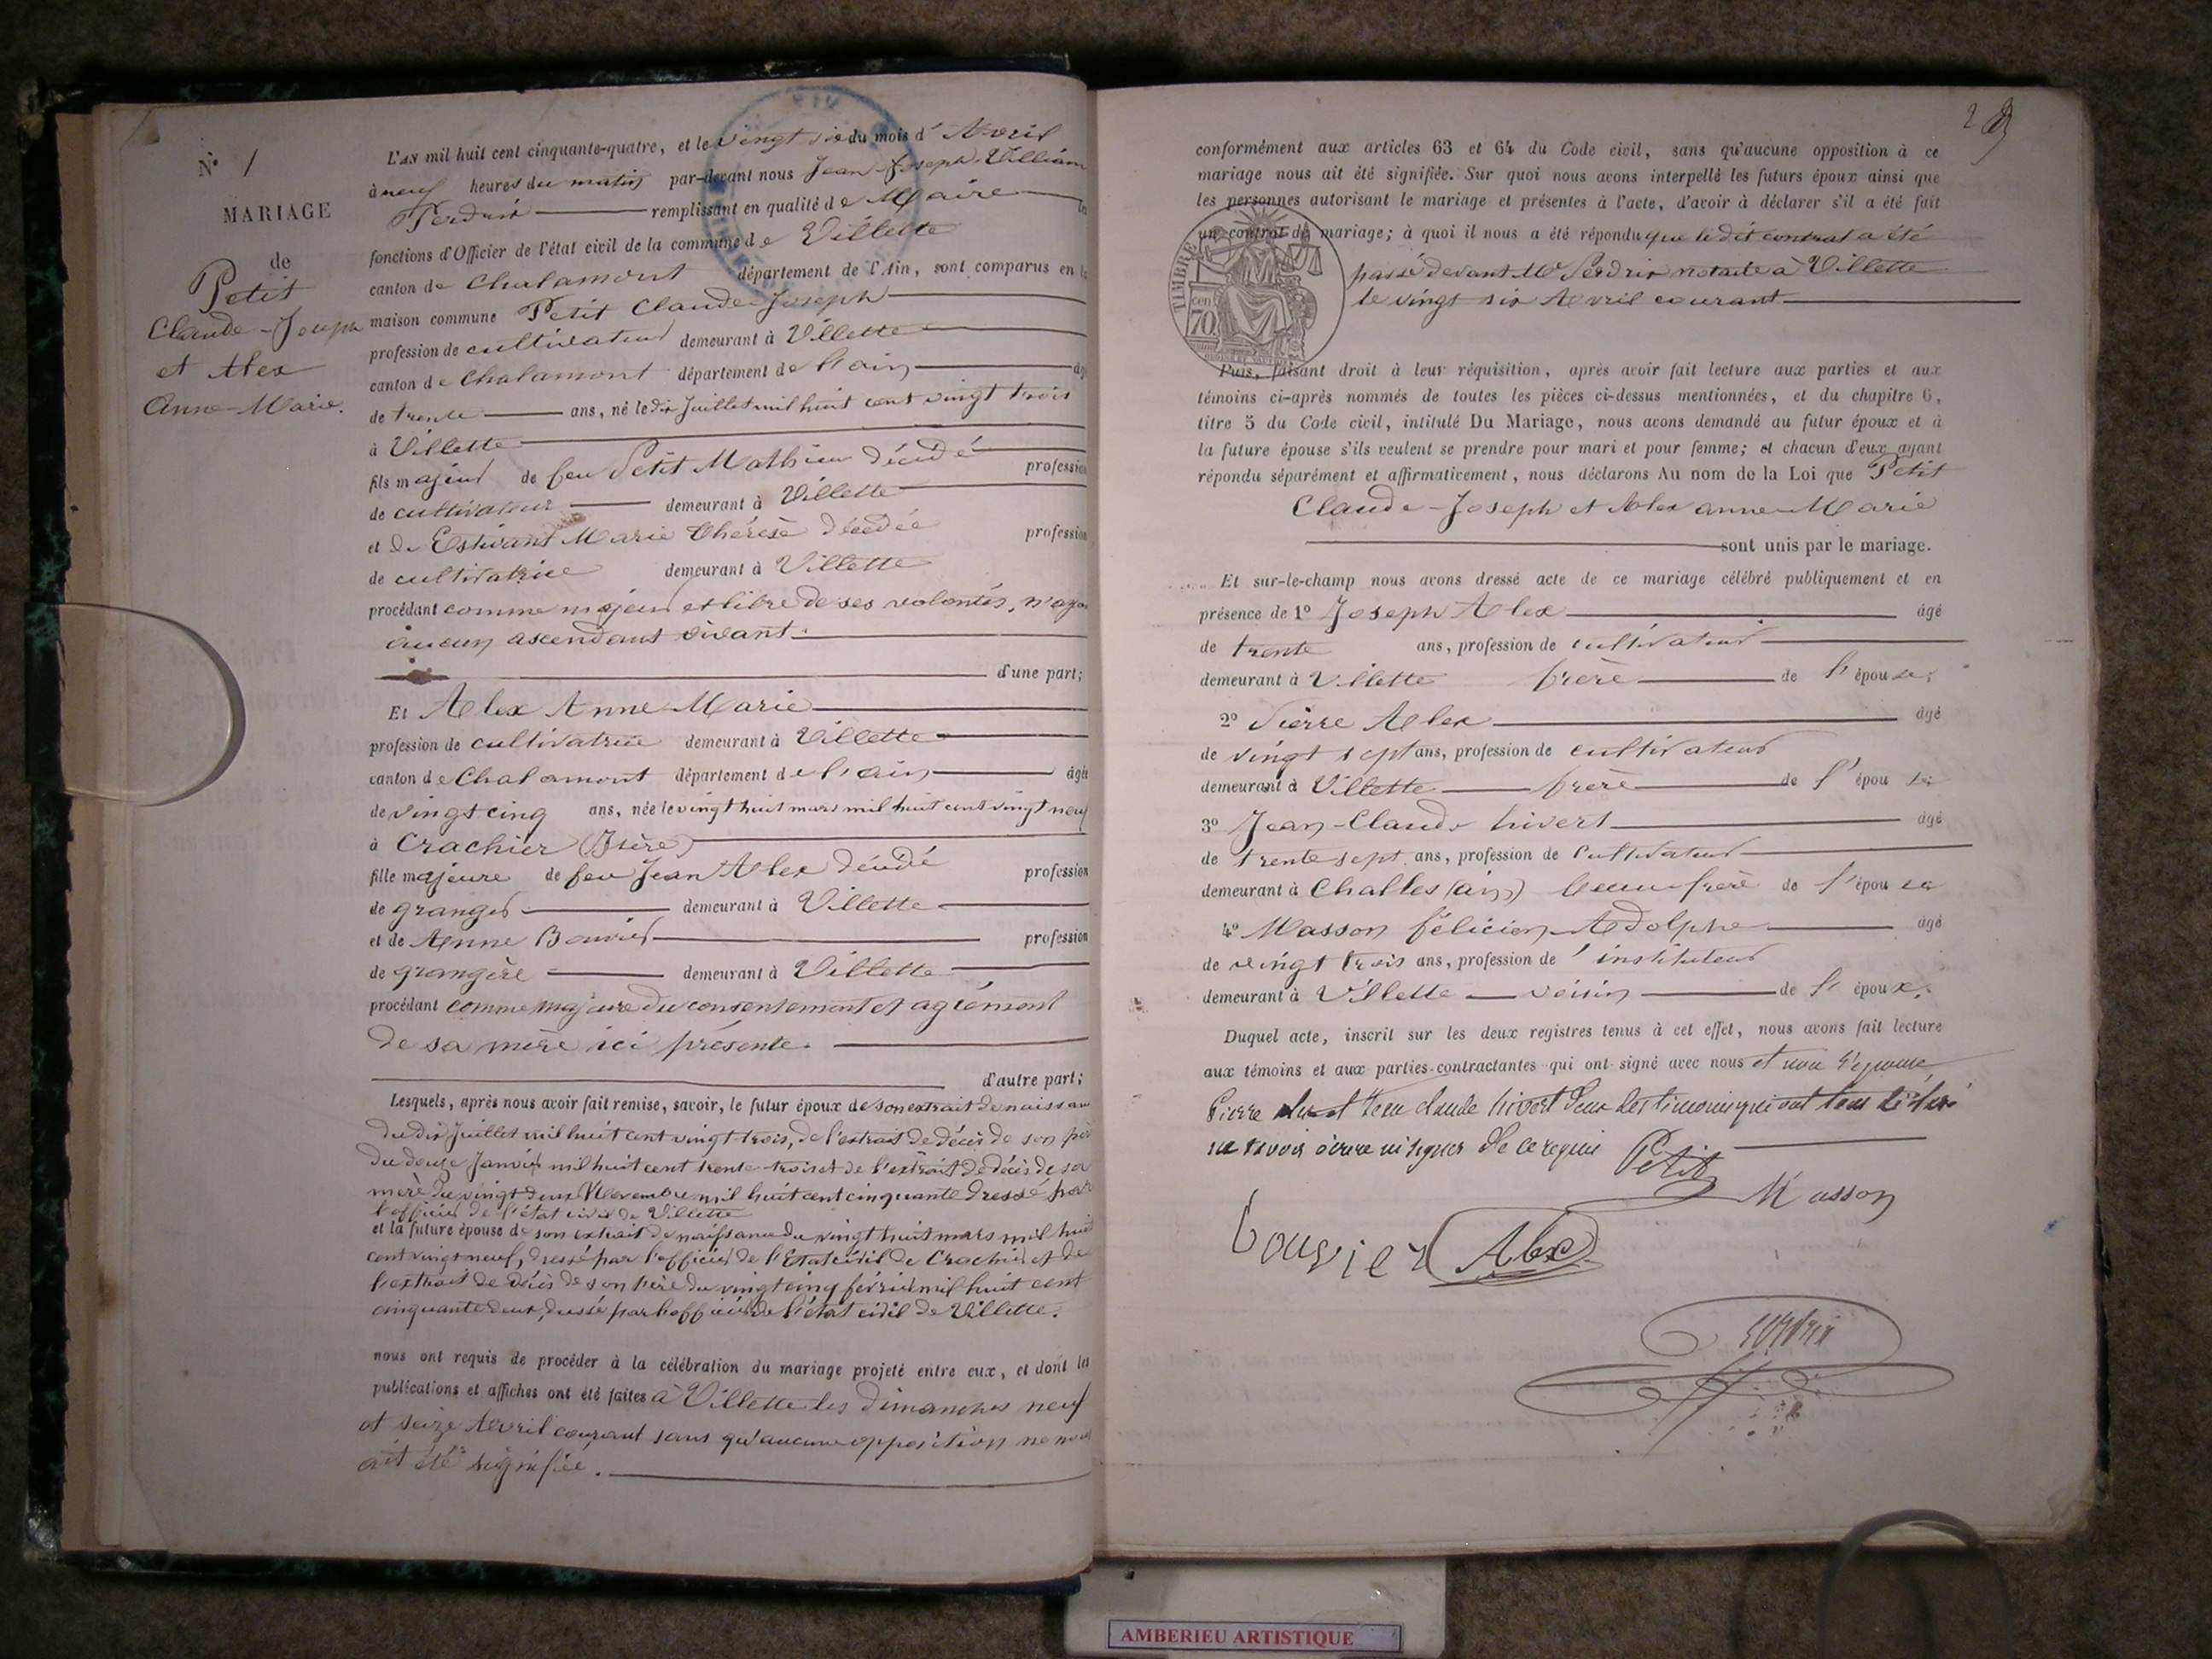 N° 1
MARIAGE
de
Petit
Claude-Joseph
et Alex
Anne-Marie.
L'AN mil huit cent cinquante-quatre, et le vingt six du mois d'Avril
à neuf heures du matin par-devant nous Jean-Joseph-William
Perdrix remplissant en qualité de Maire les
fonctions d'Officier de l'état civil de la commune de Villette
canton de Chalamont département de l'Ain, sont comparus en la
maison commune Petit Claude-Joseph
profession de cultivateur demeurant à Villette
canton de Chalamont département de l'ain âgé
de trente ans, né le dix Juillet mil huit cent vingt trois
à Villette
fils majeur de feu Petit Mathieu décédé profession
de cultivateur demeurant à Villette
et de Estivant Marie Thérèse décédée profession
de cultivatrice demeurant à Villette
procédant comme majeur et libre de ses volontés, n'ayant
aucun ascendant vivant.
d'une part;
Et Alex Anne-Marie
profession de cultivatrice demeurant à Villette
canton de Chalamont département de l'ain âgée
de vingt cinq ans, née le vingt huit mars mil huit cent vingt neuf
à Crachier (Isère)
fille majeure de feu Jean Alex décédé profession
de granger demeurant à Villette
et de Anne Bouvier profession
de grangère demeurant à Villette
procédant comme majeure du consentement et agrément
de sa mère ici présente.
d'autre part;
Lesquels, après nous avoir fait remise, savoir, le futur époux de son extrait de naissance
du dix Juillet mil huit cent vingt-trois, de l'extrait de décès de son père
du douze Janvier mil huit cent trente-trois et de l'extrait de décès de sa
mère du vingt deux Novembre mil huit cent cinquante dressé par
l'officier de l'état civil de Villette
et la future épouse de son extrait de naissance du vingt huit mars mil huit
cent vingt neuf, dressé par l'officier de l'Etat civil de Crachier et de
l'extrait de décès de son père du vingt cinq février mil huit cent
cinquante deux, dressé par l'officier de l'état civil de Villette.
nous ont requis de procéder à la célébration du mariage projeté entre eux, et dont les
publications et affiches ont été faites à Villette les dimanches neuf
et seize Avril courant sans qu'aucune opposition ne nous
ait été signifiée.
conformément aux articles 63 et 64 du Code civil, sans qu'aucune opposition à ce
mariage nous ait été signifiée. Sur quoi nous avons interpellé les futurs époux ainsi que
les personnes autorisant le mariage et présentes à l'acte, d'avoir à déclarer s'il a été fait
un contrat de mariage; à quoi il nous a été répondu que le dit contrat a été
passé devant Me Perdrix notaire à Villette
le vingt six Avril courant
TIMBRE
70
Puis, faisant droit à leur réquisition, après avoir fait lecture aux parties et aux
témoins ci-après nommés de toutes les pièces ci-dessus mentionnées, et du chapitre 6,
titre 5 du Code civil, intitulé Du Mariage, nous avons demandé au futur époux et à
la future épouse s'ils veulent se prendre pour mari et pour femme; et chacun d'eux ayant
répondu séparément et affirmativement, nous déclarons Au nom de la Loi que Petit
Claude-Joseph et Alex anne-Marie
sont unis par le mariage.
Et sur-le-champ nous avons dressé acte de ce mariage célébré publiquement et en
présence de 1° Joseph Alex âgé
de trente ans, profession de cultivateur
demeurant à Villette frère de l'épouse;
2° Pierre Alex âgé
de vingt sept ans, profession de cultivateur
demeurant à Villette frère de l'épouse
3° Jean-Claude hivert âgé
de trente sept ans, profession de cultivateur
demeurant à Challes (ain) beau-frère de l'épouse
4° Masson félicien-Adolphe âgé
de vingt trois ans, profession d'instituteur
demeurant à Villette voisin de l'époux.
Duquel acte, inscrit sur les deux registres tenus à cet effet, nous avons fait lecture
aux témoins et aux parties contractantes qui ont signé avec nous et non l'epouse
Pierre alex et Jean claude hivert deux des timoins qui ont tous déclaré
ne savoir écrire ni signer de ce requis
Petit
Masson
bouvier
Alex
Perdrix
AMBERIEU ARTISTIQUE